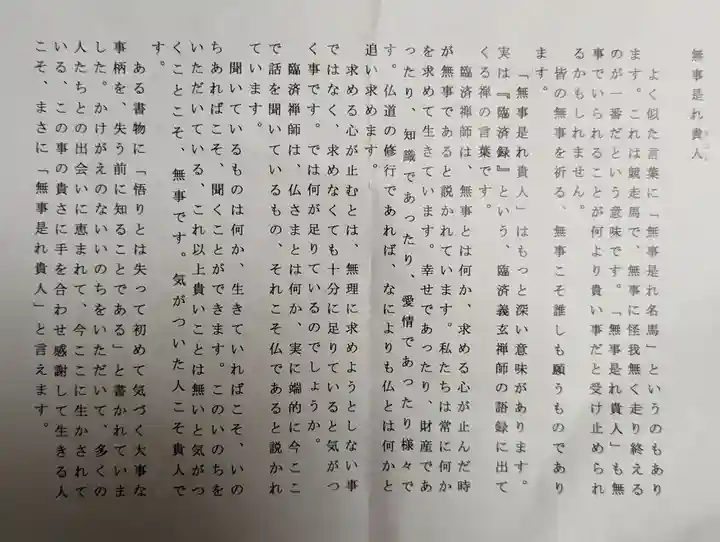 無事是れ貴人
よく似た言葉に「無事是れ名馬」というのもあり
ます。これは競走馬で、無事に怪我無く走り終える
のが一番だという意味です。「無事是れ貴人」も無
事でいられることが何より貴い事だと受け止められ
るかもしれません。
皆の無事を祈る、無事こそ誰しも願うものであり
ます。
「無事是れ貴人」はもっと深い意味があります。
実は『臨済録』という、臨済義玄禅師の語録に出て
くる禅の言葉です。
臨済禅師は、無事とは何か、求める心が止んだ時
が無事であると説かれています。私たちは常に何か
を求めて生きています。幸せであったり、財産であ
ったり、知識であったり、愛情であったり様々で
す。仏道の修行であれば、なによりも仏とは何かと
追い求めます。
求める心が止むとは、無理に求めようとしない事
ではなく、求めなくても十分に足りていると気がつ
く事です。では何が足りているのでしょうか。
臨済禅師は、仏さまとは何か、実に端的に今ここ
で話を聞いているもの、それこそ仏であると説かれ
ています。
聞いているものは何か、生きていればこそ、いの
ちあればこそ、聞くことができます。このいのちを
いただいている、これ以上貴いことは無いと気がつ
くことこそ、無事です。気がついた人こそ貴人で
す。
ある書物に「悟りとは失って初めて気づく大事な
事柄を、失う前に知ることである」と書かれていま
した。かけがえのないいのちをいただいて、多くの
人たちとの出会いに恵まれて、今ここに生かされて
いる、この事の貴さに手を合わせ感謝して生きる人
こそ、まさに「無事是れ貴人」と言えます。